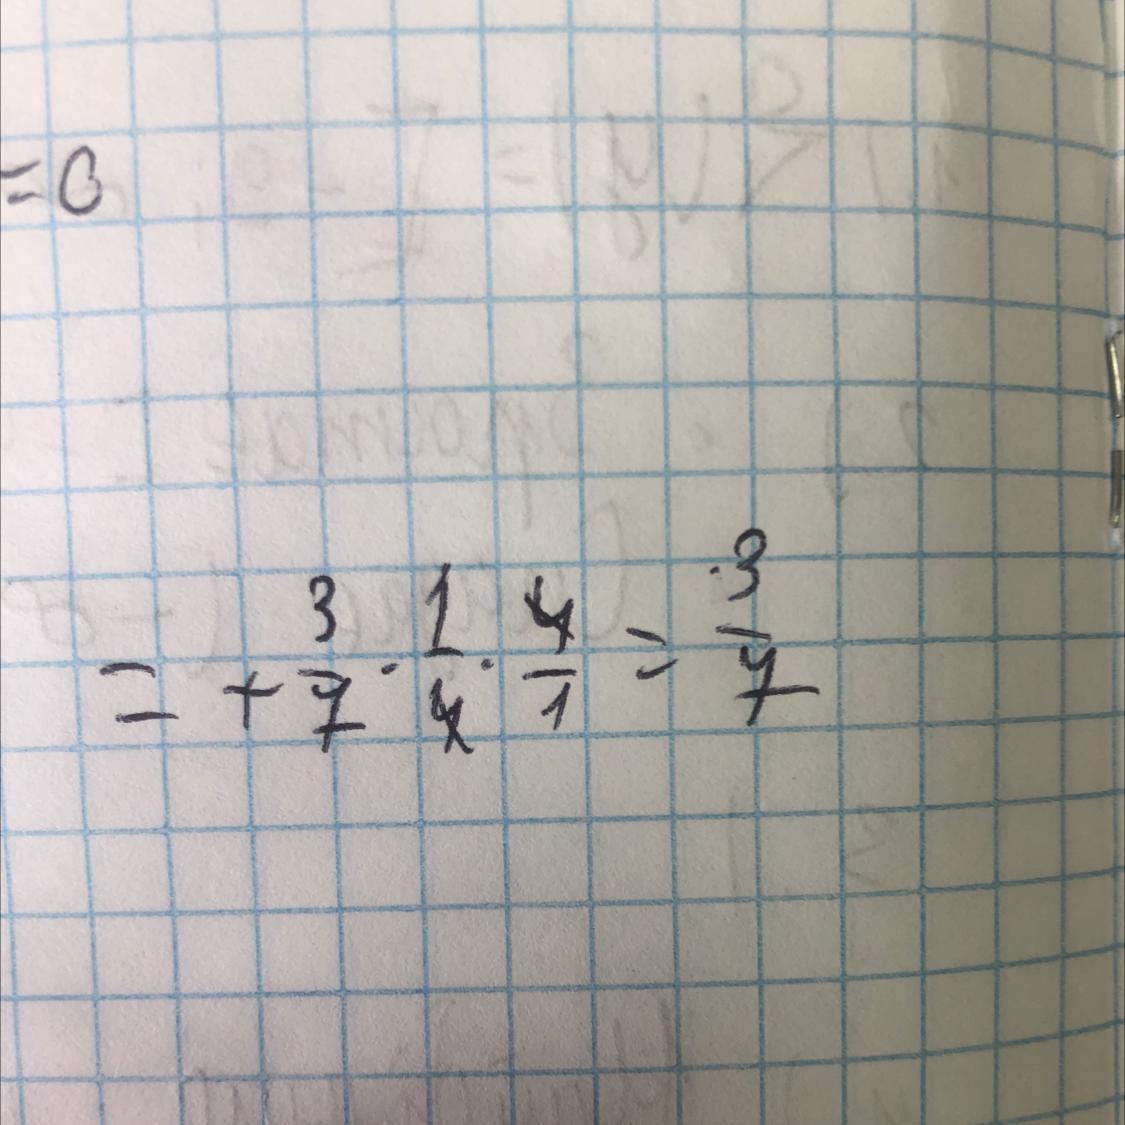 =0
= + 3/7 · 1/4 · 4/1 = 3/7